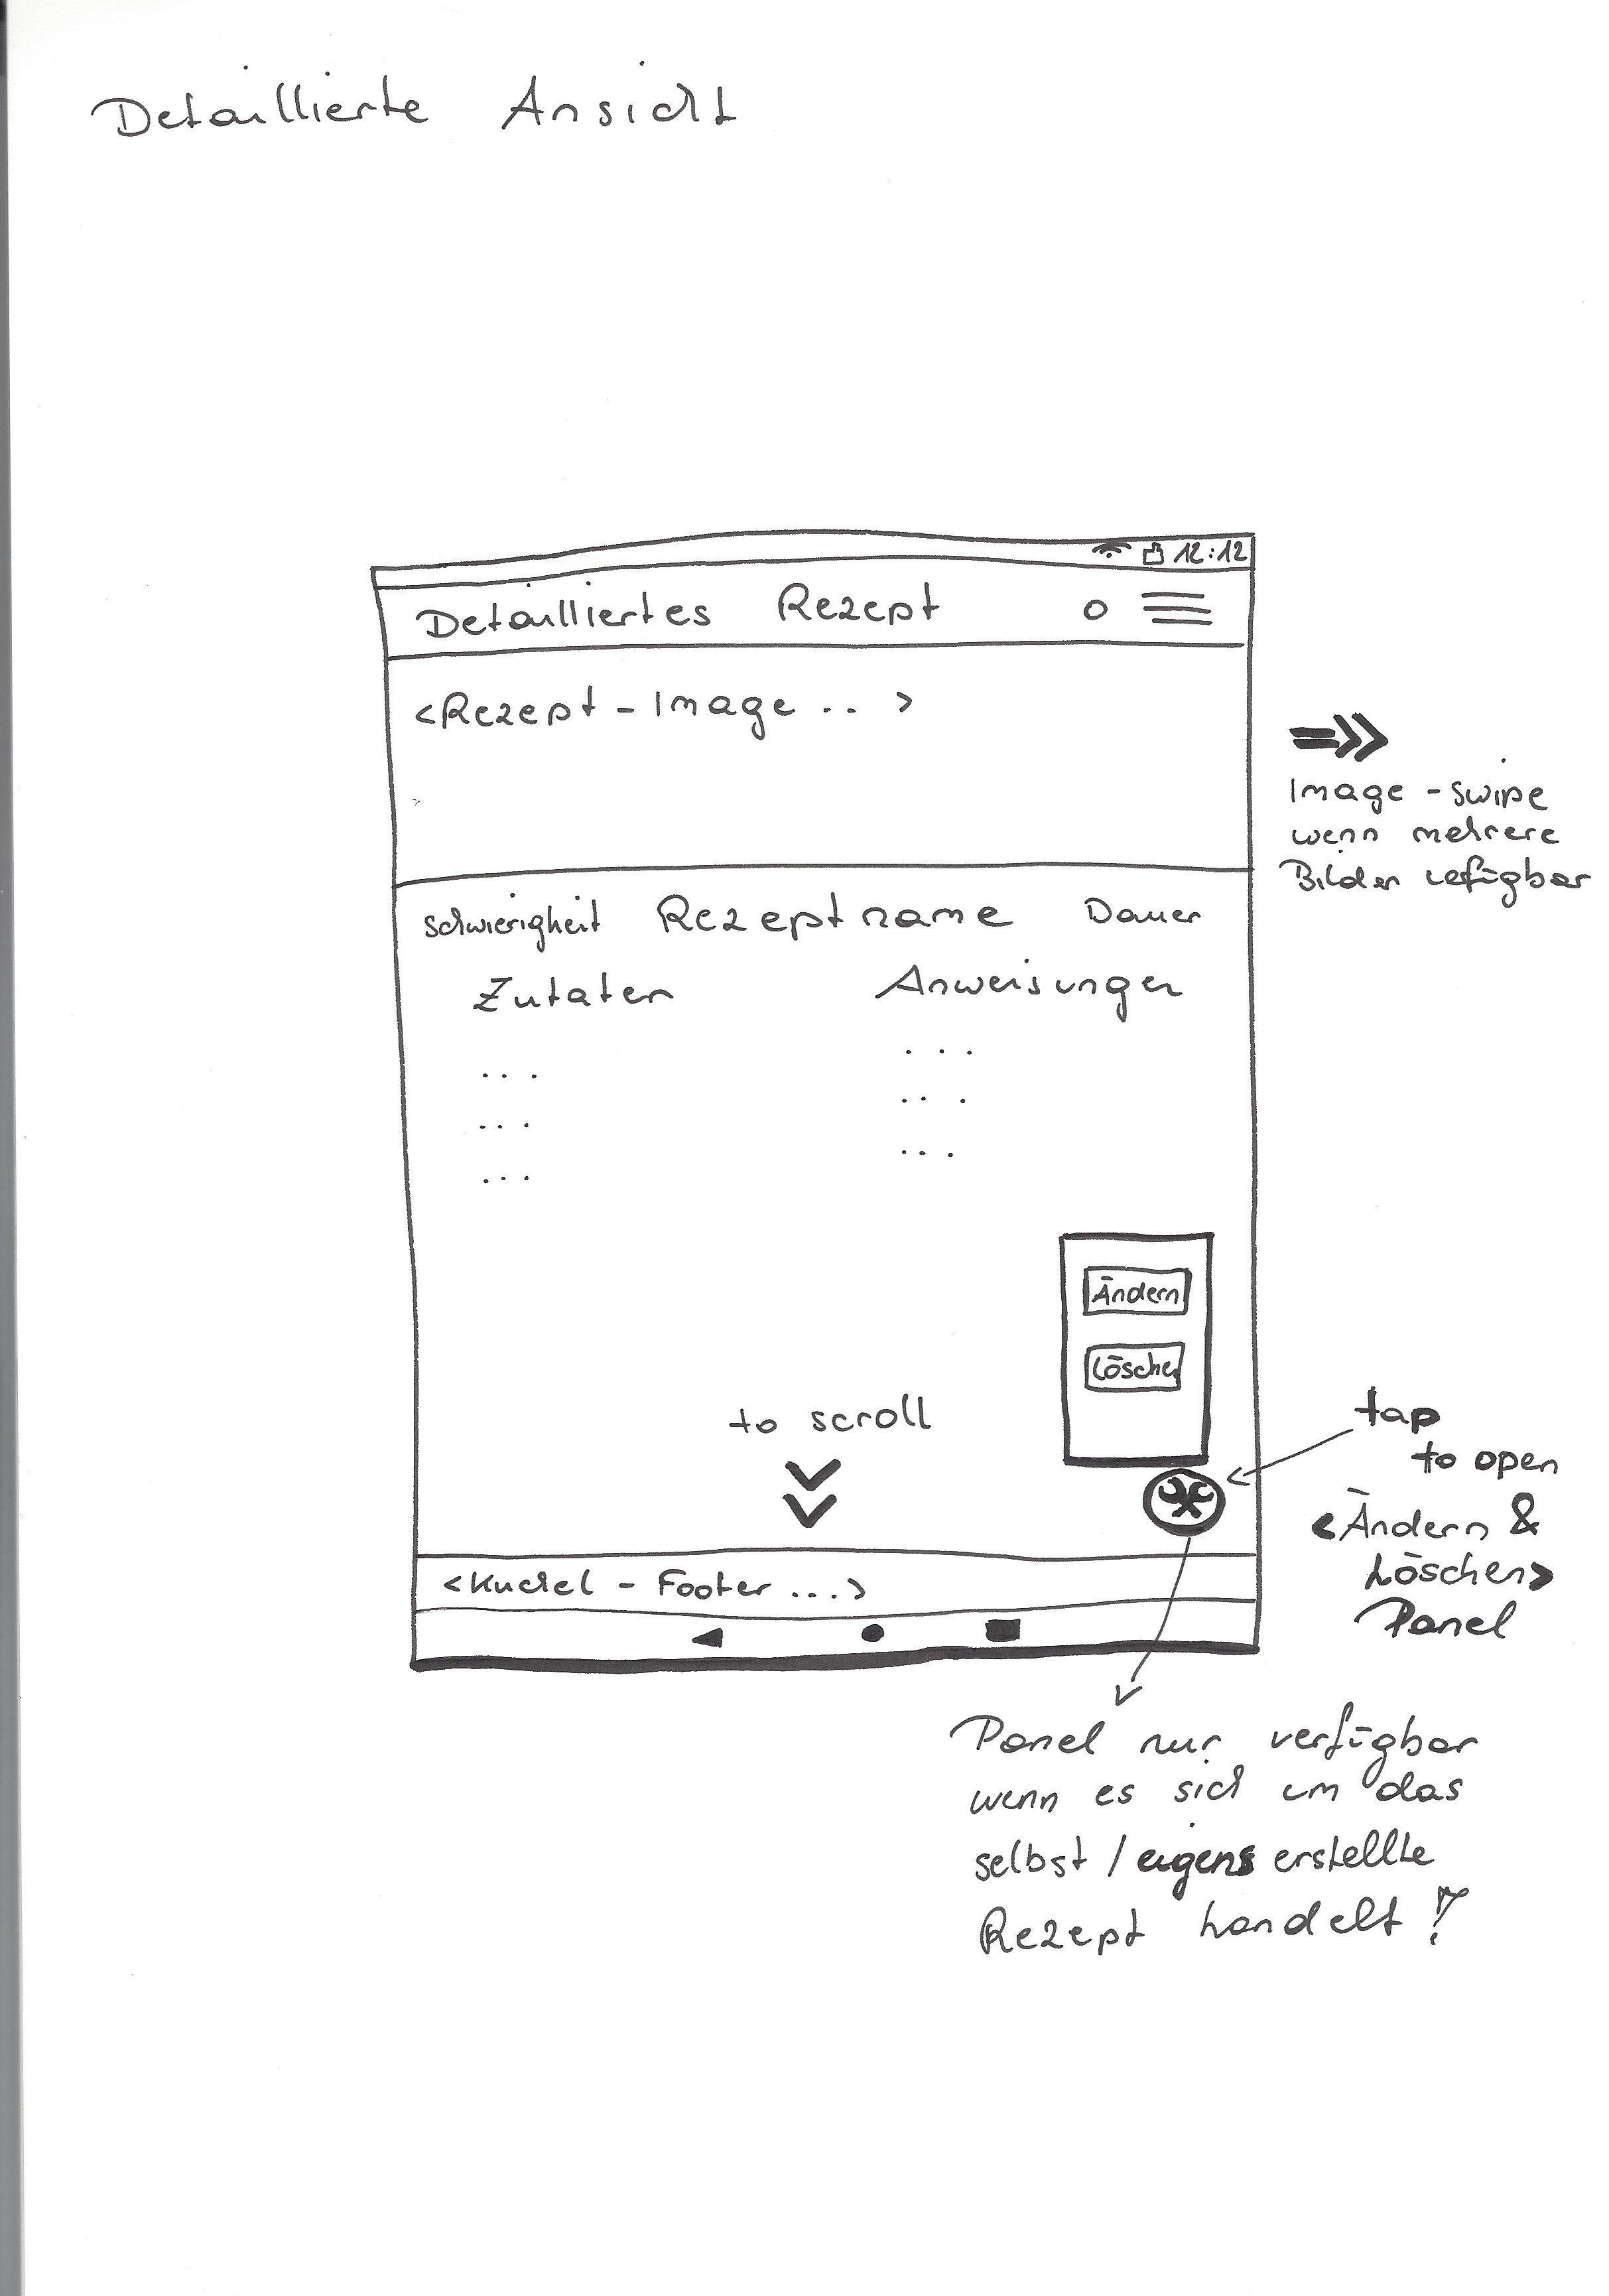 Detaillierte Ansicht
12:12
Detailliertes Rezept
<Rezept-Image .. >
Image-swipe
wenn mehrere
Bilder vefügbar
Schwierigkeit Rezeptname Dauer
Zutaten Anweisungen
... ...
... ...
... ...
Ändern
Löschen
to scroll
tap
to open
<Ändern &
Löschen>
Panel
- Footer ...>
Panel nur verfügbar
wenn es sich um das
selbst / eigens erstellte
Rezept handelt!